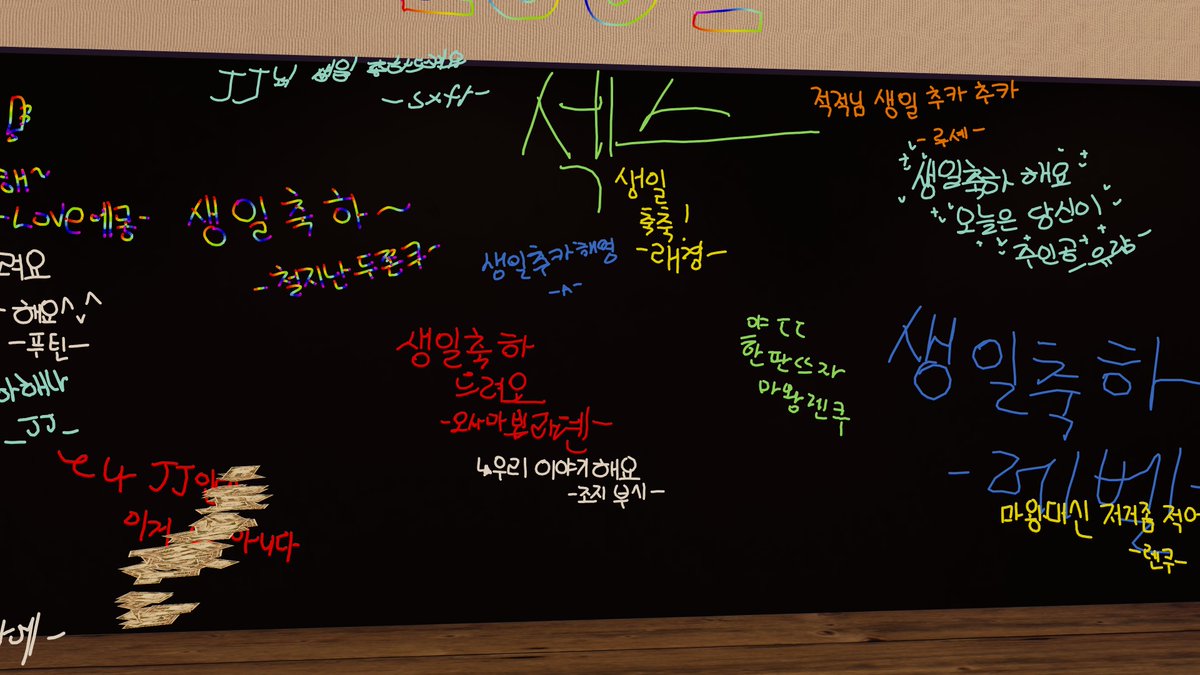 JJ님 생일 축하드려요
-sxft-
해~
-Love에쿵-
생일축하~
-철지난두쫀쿠-
려요
해요^^
-푸틴-
하해나
-JJ-
JJ
이거
아니다
세스
생일
축축!
-래경-
생일추카해영
-^-
생일축하
드려요
-오사마 빈라덴-
↳우리 이야기해요
-조지 부시-
적적님 생일 추카 추카
-루세-
생일축하 해요
오늘은 당신이
주인공
야 ㄷㄷ
한판뜨자
마왕렌쿠
생일축하
마왕대신 저거좀 적어
-렌쿠-